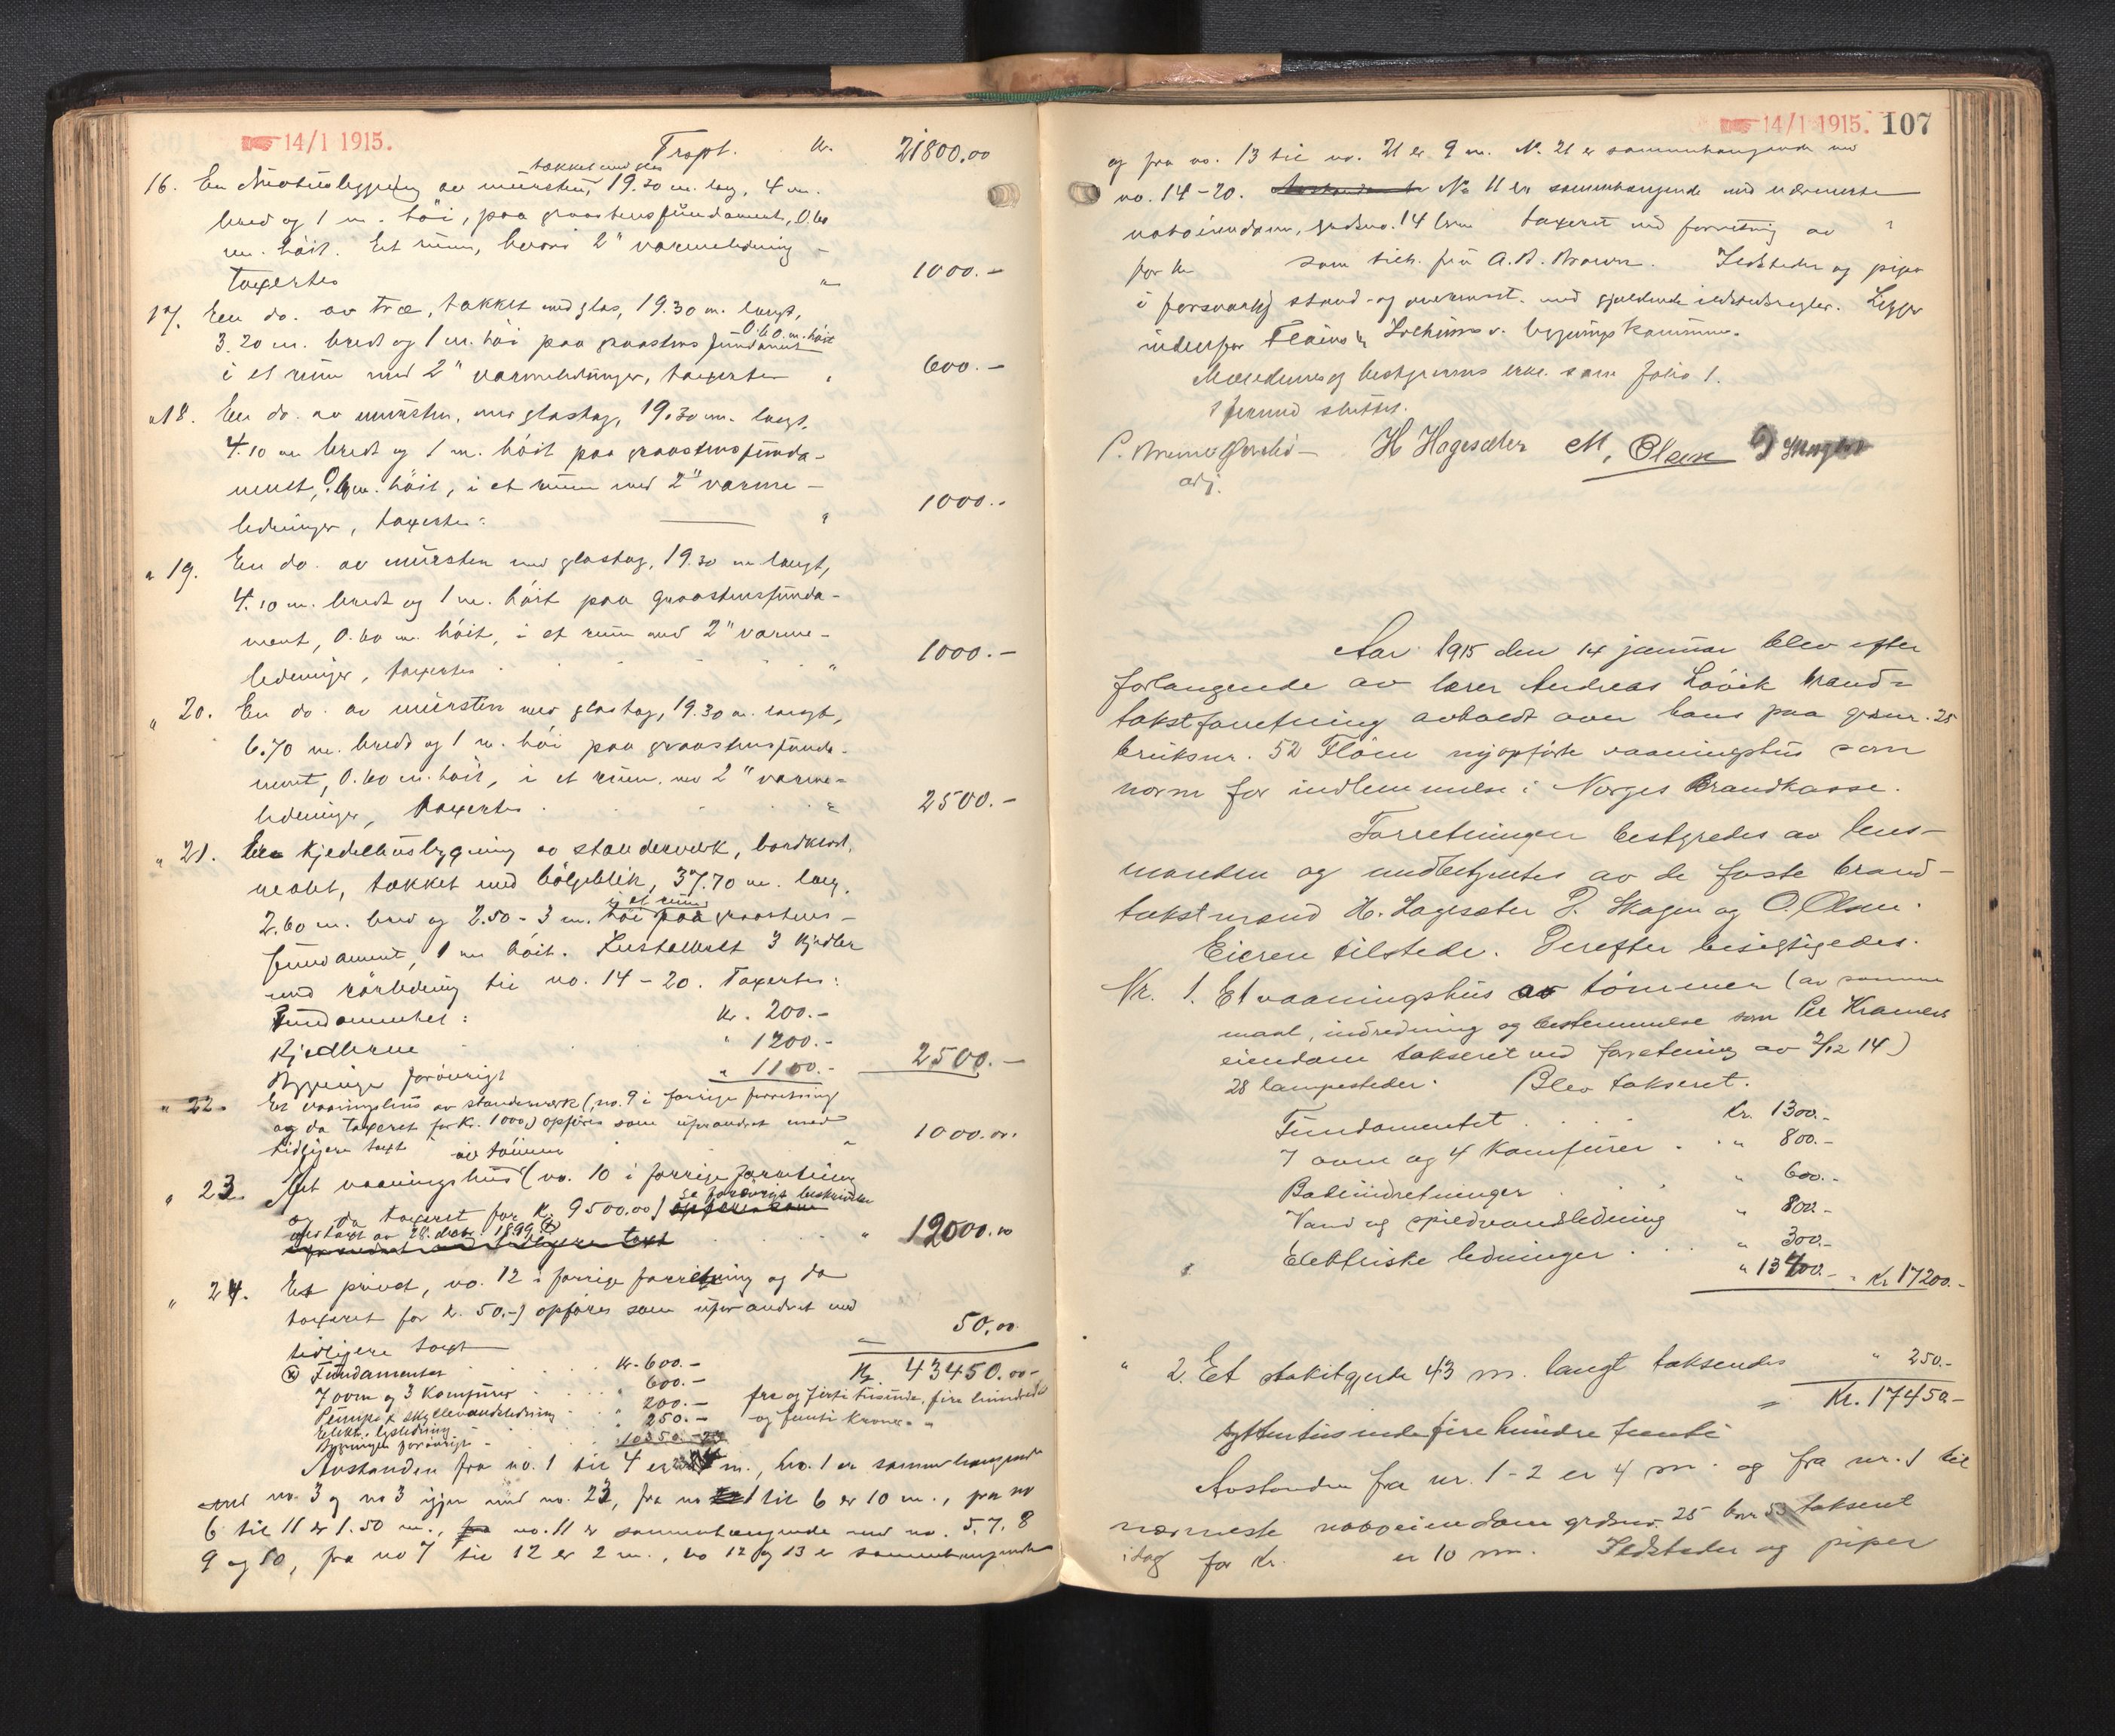 14/1 1915.
Trspt. kr. 21800,00
tækket med glas
16. En Drivhusbygning av mursten, 19.30 m. lang, 4 m.
bred og 1 m. höi, paa graastensfundament, 0.60
m. höit. Et rum, hvori 2" varmeledning
taxertes " 1000.-
17. En do. av træ, tækket med glas, 19.30 m. langt,
3.20 m. bredt og 1 m. höi paa graastens fundament 0.60 m. höit
i et rum med 2" varmeledninger, taxertes " 600.-
"18. En do. av mursten, med glastag, 19.30 m. langt,
4.10 m bredt og 1 m. höit paa graastensfunda-
ment, 0.60 m. höit, i et rum med 2" varme-
ledninger, taxertes: " 1000.-
" 19. En do. av mursten med glastag, 19.30 m langt,
4.10 m. bredt og 1 m. höit paa graastensfunda-
ment, 0.60 m. höit, i et rum med 2" varme-
ledninger, taxertes " 1000.-
" 20. En do. av mursten med glastag, 19.30 m. langt,
6.70 m. bredt og 1 m. höi paa graastensfunda-
ment, 0.60 m. höit, i et rum, med 2" varme-
ledninger, taxertes " 2500.-
" 21. En Kjedelhusbygning av standerværk, bordklædt,
malet, tækket med bölgeblik, 37.70 m. lang,
i et rum
2.60 m. bred og 2.50 - 3 m. höi paa graastens-
fundament, 1 m höit. Installert 3 Kjedler
med rörledning til no. 14 - 20. Taxertes:
Fundamentet: Kr. 200.-
Kjedlerne " 1200.-
Bygninger forövrigt " 1100.- 2500.-
" 22. Et vaaningshus av standerværk (no. 9 i forrige forretning
og da taxeret for Kr. 1000,) opföres som uforandret med
tidligere taxt " 1000.00.
av tömmer
" 23. Et vaaningshus (no. 10 i forrige forretning
og da taxeret for Kr. 9500.00) se forövrigt beskrivelse
av takst av 28. decbr. 1899 (x) " 12000.00
" 24. Et privet, no. 12 i forrige forretning og da
taxeret for k. 50.-) opföres som uforandret med
tidligere taxt 50,00
Kr. 43450.00-
(x) Fundamentet Kr. 600.-
7 ovne og 3 Komfurer " 600.-
Pumpe & skyllevandsledning " 200.-
Elekt. lysledning " 250.-
Bygningen forövrigt - 10350.-
tre og förti tusinde, fire hundrede
og femti Kroner.
Avstanden fra no. 1 til 4 er m., no. 1 er sammenhængende
med no. 3 og no 3 igjen med no. 23, fra no 1 til 6 er 10 m., fra no
6 til 11 er 1.50 m., no. 11 er sammenhængende med no. 5, 7, 8
9 og 10, fra no 7 til 12 er 2 m., no 12 og 13 er sammenhængende
14/1 1915. 107
og fra no. 13 til no. 21 er 9 m. No. 21 er sammenhængende med
no. 14-20. No 11 er sammenhængende med nærmeste
naboeiendom, gardsno. 14 brn taxeret ved forretning av
for kr som tilh. fru A. B. Brown. Ildsteder og piper
i forsvarlig stand og overensst. med gjældende ildstedsregler. Ligger
indenfor Fløens & Solheims v. bygningskommune.
Mændenes og bestyrerens erkl. som folio 1.
Forretn. sluttet.
H Hagesæter M, Olsen
Aar 1915 den 14 januar blev efter
forlangende av lærer Andreas Lövik brand-
takstforretning avholdt over hans paa grdsnr. 25
bruksnr. 52 Flöen nyopförte vaaningshus som
norm for indlemmelse i Norges Brandkasse.
Forretningen bestyredes av lens-
manden og medbetjentes av de faste brand-
takstmænd H. Hagesæter P. Skagen og O. Olsen.
Eieren tilstede. Derefter besigtigedes.
Nr. 1. Et vaaningshus av tömmer (av samme
maal, indredning og bestemmelse som Per Kramers
eiendom takseret ved forretning av 2/12 14)
28 lampesteder. Blev takseret.
Fundamentet Kr. 1300.-
7 ovne og 4 Komfurer " 800.-
Badeindretninger " 600.-
Vand og spildvandsledning " 800.-
Elektriske ledninger " 300.-
" 13400.- " Kr 17200.-
" 2. Et stakitgjerde 43 m. langt taksertes " 250.-
= Kr. 17450-
syttentusindefirehundre femti
Avstanden fra nr. 1 - 2 er 4 m. og fra nr. 1 til
nærmeste naboeiendom grdsnr. 25 brnr 53 takseret
idag for Kr. er 10 m. Ildsteder og piper